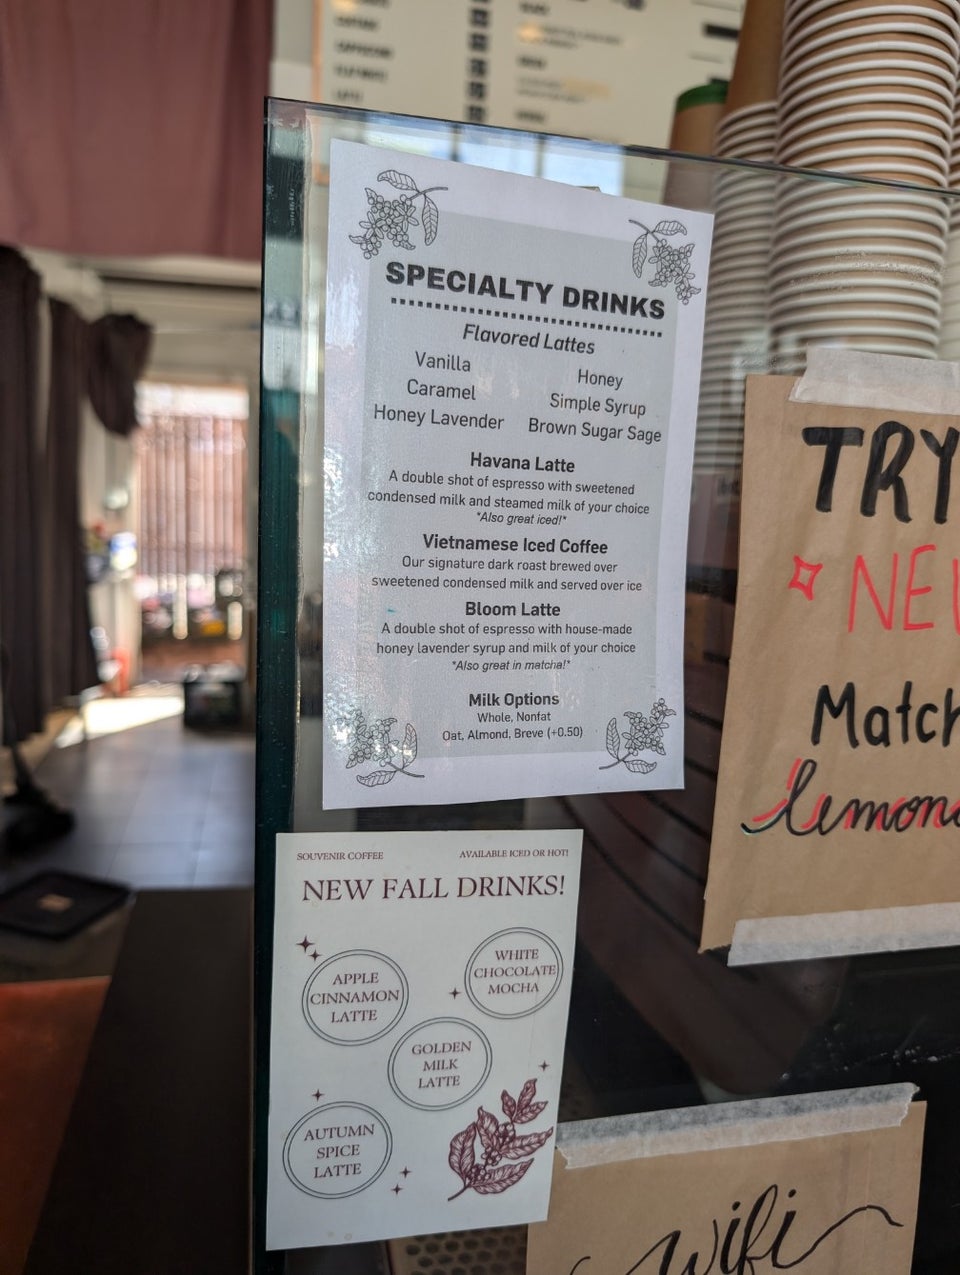 SPECIALTY DRINKS
Flavored Lattes
Vanilla
Honey
Caramel
Simple Syrup
Honey Lavender
Brown Sugar Sage
Havana Latte
A double shot of espresso with sweetened
condensed milk and steamed milk of your choice
*Also great iced!*
Vietnamese Iced Coffee
Our signature dark roast brewed over
sweetened condensed milk and served over ice
Bloom Latte
A double shot of espresso with house-made
honey lavender syrup and milk of your choice
*Also great in matcha!*
Milk Options
Whole, Nonfat
Oat, Almond, Breve (+0.50)
SOUVENIR COFFEE
AVAILABLE ICED OR HOT!
NEW FALL DRINKS!
APPLE
CINNAMON
LATTE
WHITE
CHOCOLATE
MOCHA
GOLDEN
MILK
LATTE
AUTUMN
SPICE
LATTE
TRY
wifi